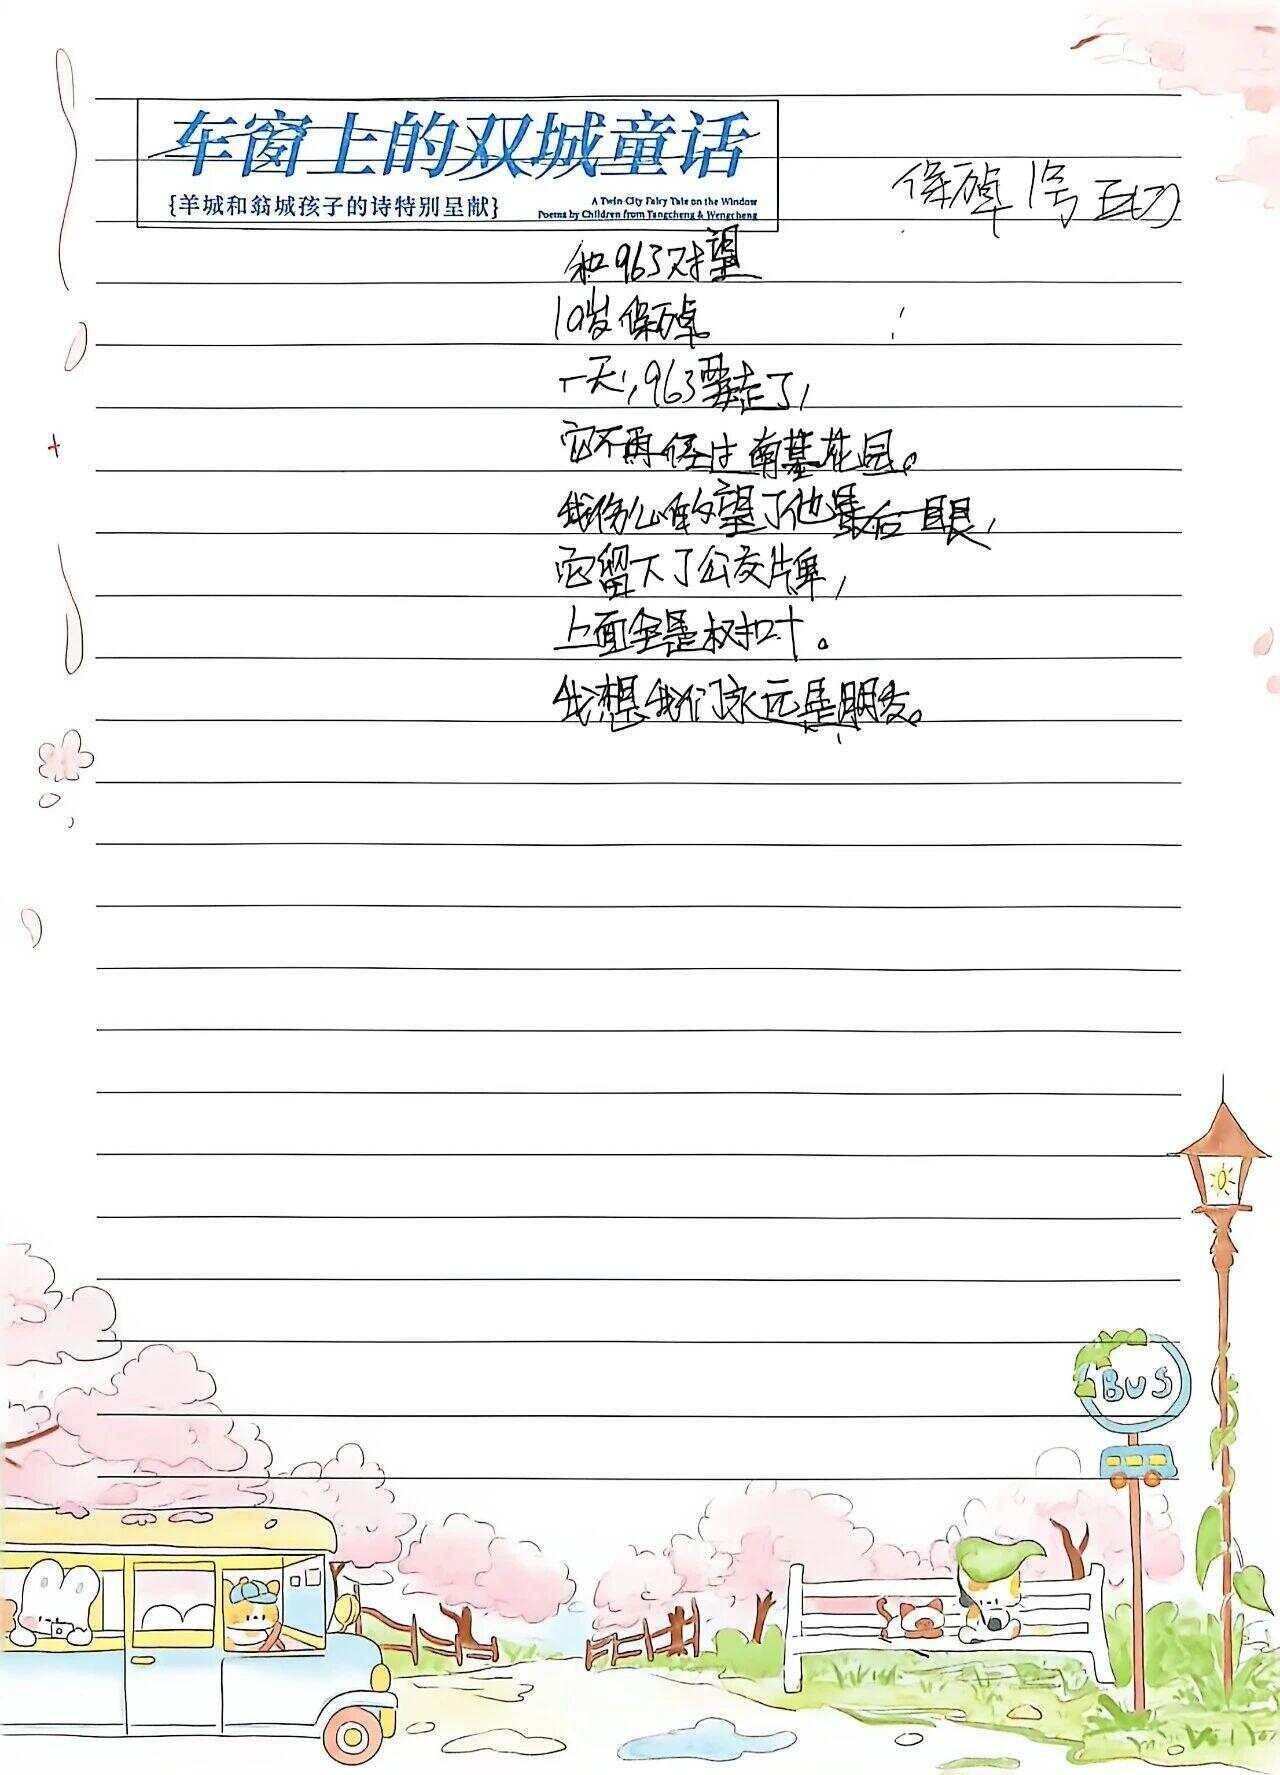 车窗上的双城童话
{羊城和翁城孩子的诗特别呈献}
A Twin-City Fairy Tale on the Window
Poems by Children from Yangcheng & Wengcheng
1号
和963对望
10岁
一天,963要走了,
它不再经过南基花园。
我伤心的望了他最后一眼,
它留下了公交牌,
上面全是树和叶。
我想我们永远是朋友。
BUS